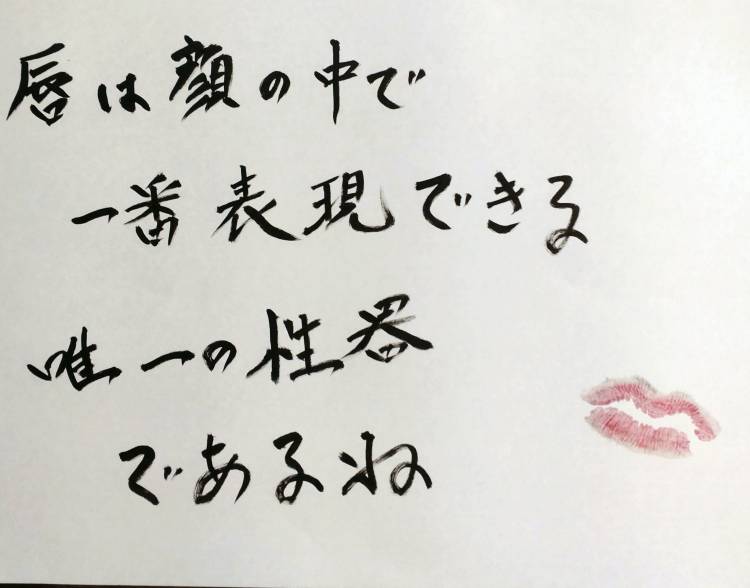 唇は顔の中で
一番表現できる
唯一の性器
であるね